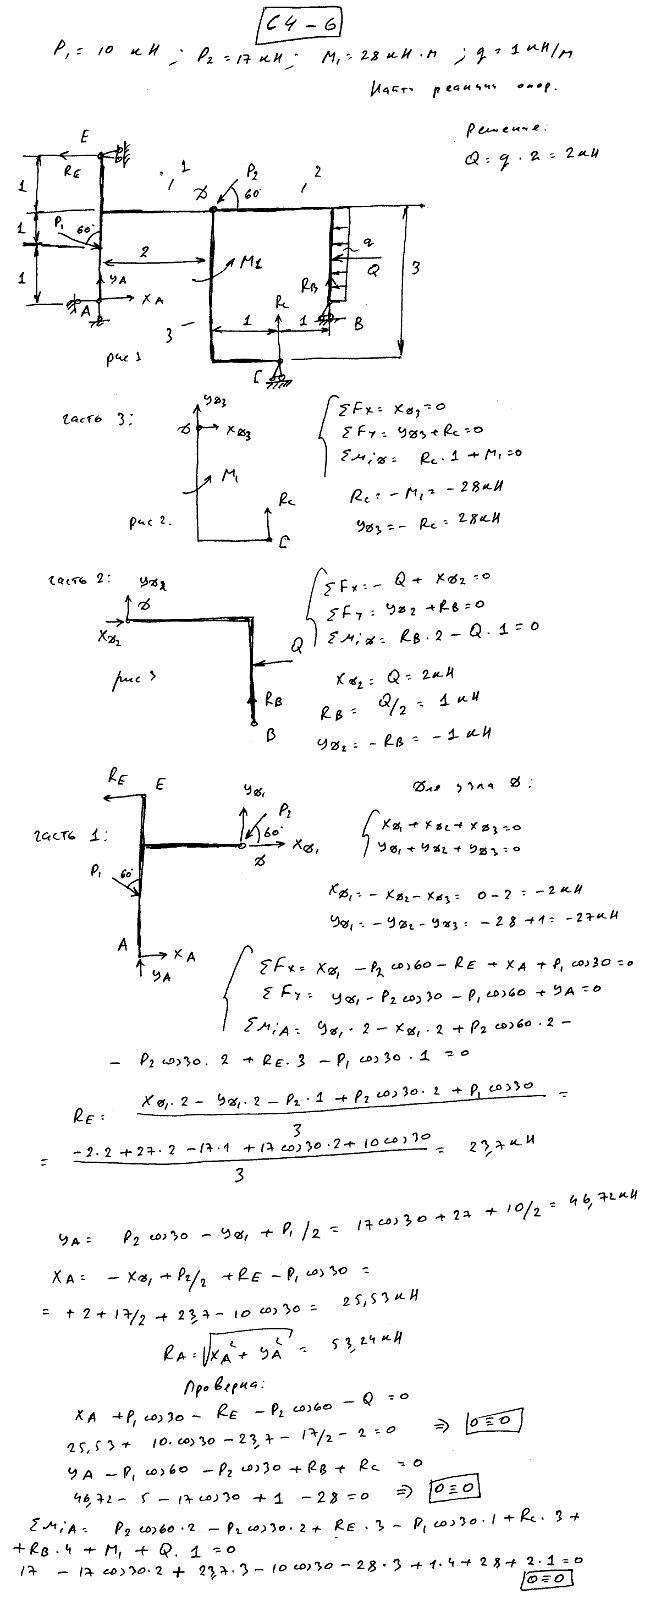 C4-6
P₁ = 10 кН ; P₂ = 17 кН ; M₁ = 28 кН·м ; q = 1 кН/м
Найти реакции опор.
Решение:
Q = q · 2 = 2 кН
E
R_E
1
P₁
60°
1
1
2
Y_A
A
X_A
1
D
P₂
60°
2
M1
3
рис 1
1
1
R_C
C
R_B
B
q
Q
3
часть 3:
Y_D3
D
X_D3
M₁
R_C
C
рис 2.
ΣFx = X_D3 = 0
ΣFy = Y_D3 + R_C = 0
ΣM_iD = R_C · 1 + M₁ = 0
R_C = - M₁ = - 28 кН
Y_D3 = - R_C = 28 кН
часть 2:
Y_D2
D
X_D2
Q
R_B
B
рис 3
ΣFx = - Q + X_D2 = 0
ΣFy = Y_D2 + R_B = 0
ΣM_iD = R_B · 2 - Q · 1 = 0
X_D2 = Q = 2 кН
R_B = Q/2 = 1 кН
Y_D2 = - R_B = - 1 кН
часть 1:
R_E
E
Y_D1
P₂
60°
X_D1
D
P₁
60°
A
X_A
Y_A
Для узла D:
X_D1 + X_D2 + X_D3 = 0
Y_D1 + Y_D2 + Y_D3 = 0
X_D1 = - X_D2 - X_D3 = 0 - 2 = - 2 кН
Y_D1 = - Y_D2 - Y_D3 = - 28 + 1 = - 27 кН
ΣFx = X_D1 - P₂ cos60 - R_E + X_A + P₁ cos30 = 0
ΣFy = Y_D1 - P₂ cos30 - P₁ cos60 + Y_A = 0
ΣM_iA = Y_D1 · 2 - X_D1 · 2 + P₂ cos60 · 2 -
- P₂ cos30 · 2 + R_E · 3 - P₁ cos30 · 1 = 0
R_E = (X_D1 · 2 - Y_D1 · 2 - P₂ · 1 + P₂ cos30 · 2 + P₁ cos30) / 3 =
= (-2·2 + 27·2 - 17·1 + 17 cos30·2 + 10 cos30) / 3 = 23,7 кН
Y_A = P₂ cos30 - Y_D1 + P₁/2 = 17 cos30 + 27 + 10/2 = 46,72 кН
X_A = - X_D1 + P₂/2 + R_E - P₁ cos30 =
= + 2 + 17/2 + 23,7 - 10 cos30 = 25,53 кН
R_A = √(X_A² + Y_A²) = 53,24 кН
Проверка:
X_A + P₁ cos30 - R_E - P₂ cos60 - Q = 0
25,53 + 10·cos30 - 23,7 - 17/2 - 2 = 0 ⇒ 0≡0
Y_A - P₁ cos60 - P₂ cos30 + R_B + R_C = 0
46,72 - 5 - 17 cos30 + 1 - 28 = 0 ⇒ 0≡0
ΣM_iA = P₂ cos60·2 - P₂ cos30·2 + R_E · 3 - P₁ cos30·1 + R_C · 3 +
+ R_B · 4 + M₁ + Q · 1 = 0
17 - 17 cos30·2 + 23,7·3 - 10 cos30 - 28·3 + 1·4 + 28 + 2·1 = 0
0≡0